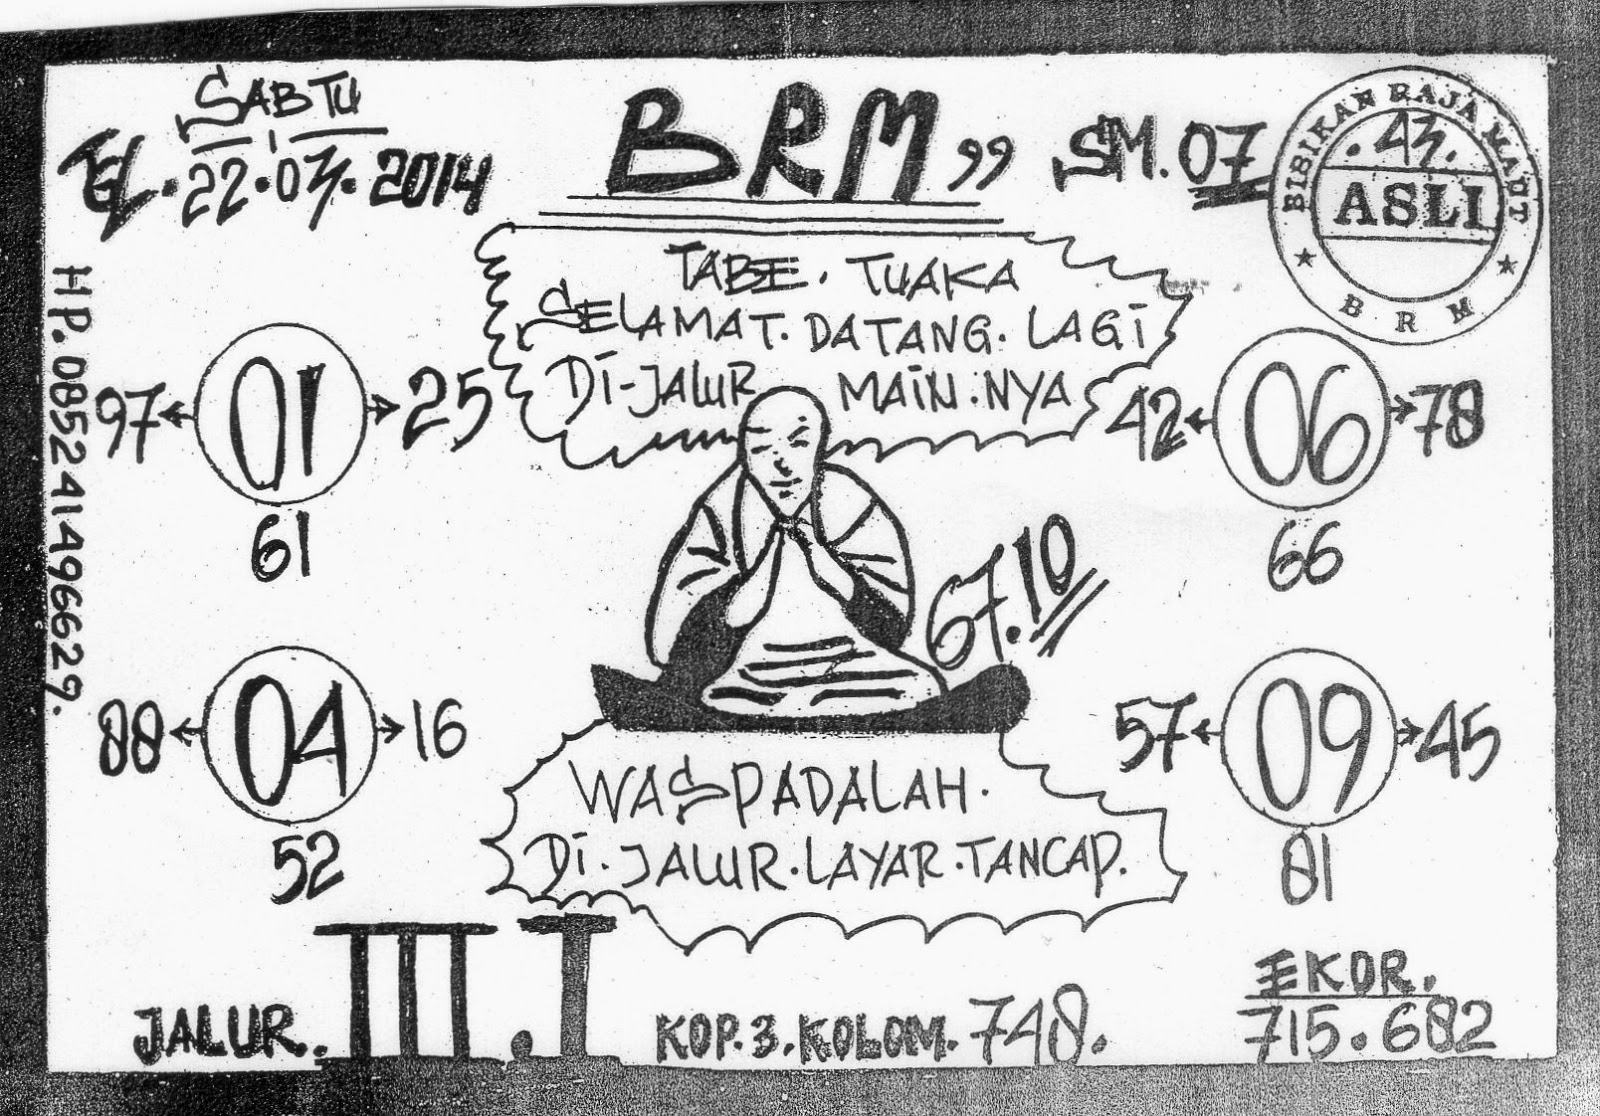 SABTU
TGL. 22.03.2014
BRM,,
SM.07
BISIKAN RAJA MAUT
.43.
ASLI
★ BRM ★
HP. 085241496629.
TABE. TUAKA
SELAMAT. DATANG. LAGI
Di-JALUR MAIN.NYA
97 ← 01 → 25
61
42 ← 06 → 78
66
67.10
88 ← 04 → 16
52
57 ← 09 → 45
81
WASPADALAH.
Di. JALUR. LAYAR. TANCAP.
JALUR. III.I
KOP. 3. KOLOM. 748.
EKOR.
715.682